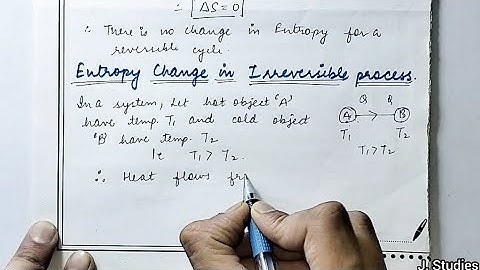 ∴ ΔS = 0
∴ There is no change in Entropy for a
reversible cycle.
Entropy Change in Irreversible process.
In a system, Let hot object 'A'
have temp. T₁ and cold object
'B' have temp. T₂
Ie T₁ > T₂.
∴ Heat flows fr
Q Q
A B
T₁ T₂
T₁ > T₂
J. Studies